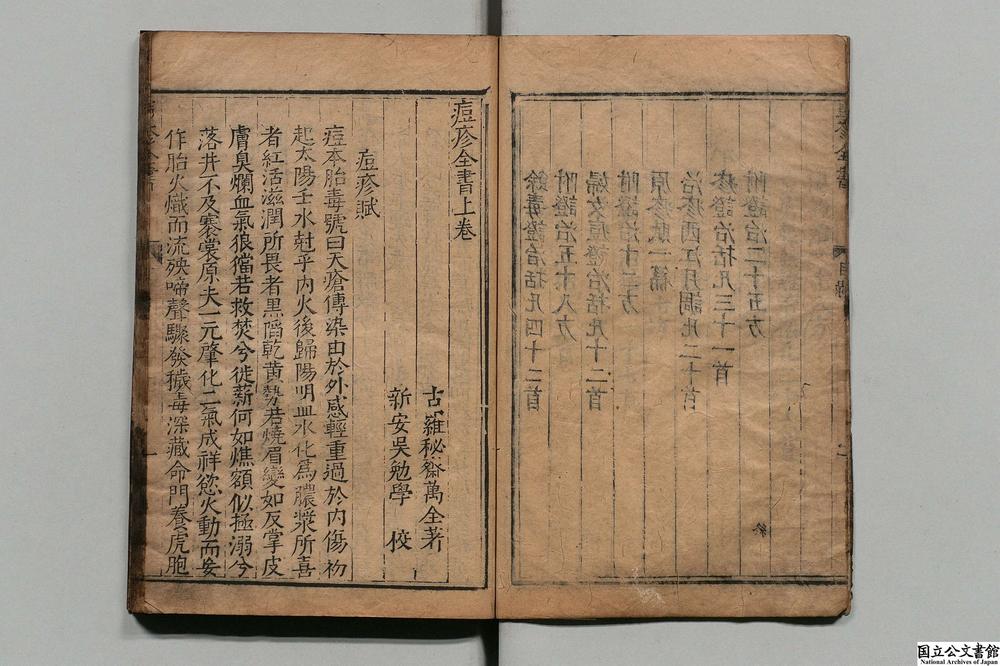 餘毒證治括凡四十二首
附證治五十八方
婦女痘證治括凡十二首
附證治十二方
原疹賦一篇
治疹西江月調凡二十首
疹證治括凡三十一首
附證治二十五方
終
目錄
痘疹全書上卷
古羅秘齋萬全著
新安吳勉學 校
痘疹賦
痘本胎毒號曰天瘡傳染由於外感輕重過於内傷初
起太陽壬水尅乎丙火後歸陽明血水化爲膿漿所喜
者紅活滋潤所畏者黑陷乾黄勢若燒眉變如反掌皮
膚臭爛血氣狼儅若救焚兮徙薪何如燋額似拯溺兮
落井不及褰裳原夫一元肇化二氣成祥慾火動而妄
作胎火熾而流殃啼聲驟發穢毒深藏命門養虎胞
國立公文書館
National Archives of Japan